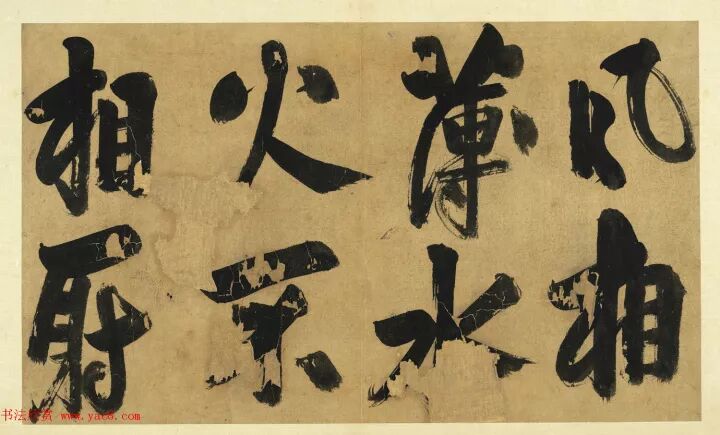 風相
薄水
火不
相射
书法欣赏 www.yac8.com